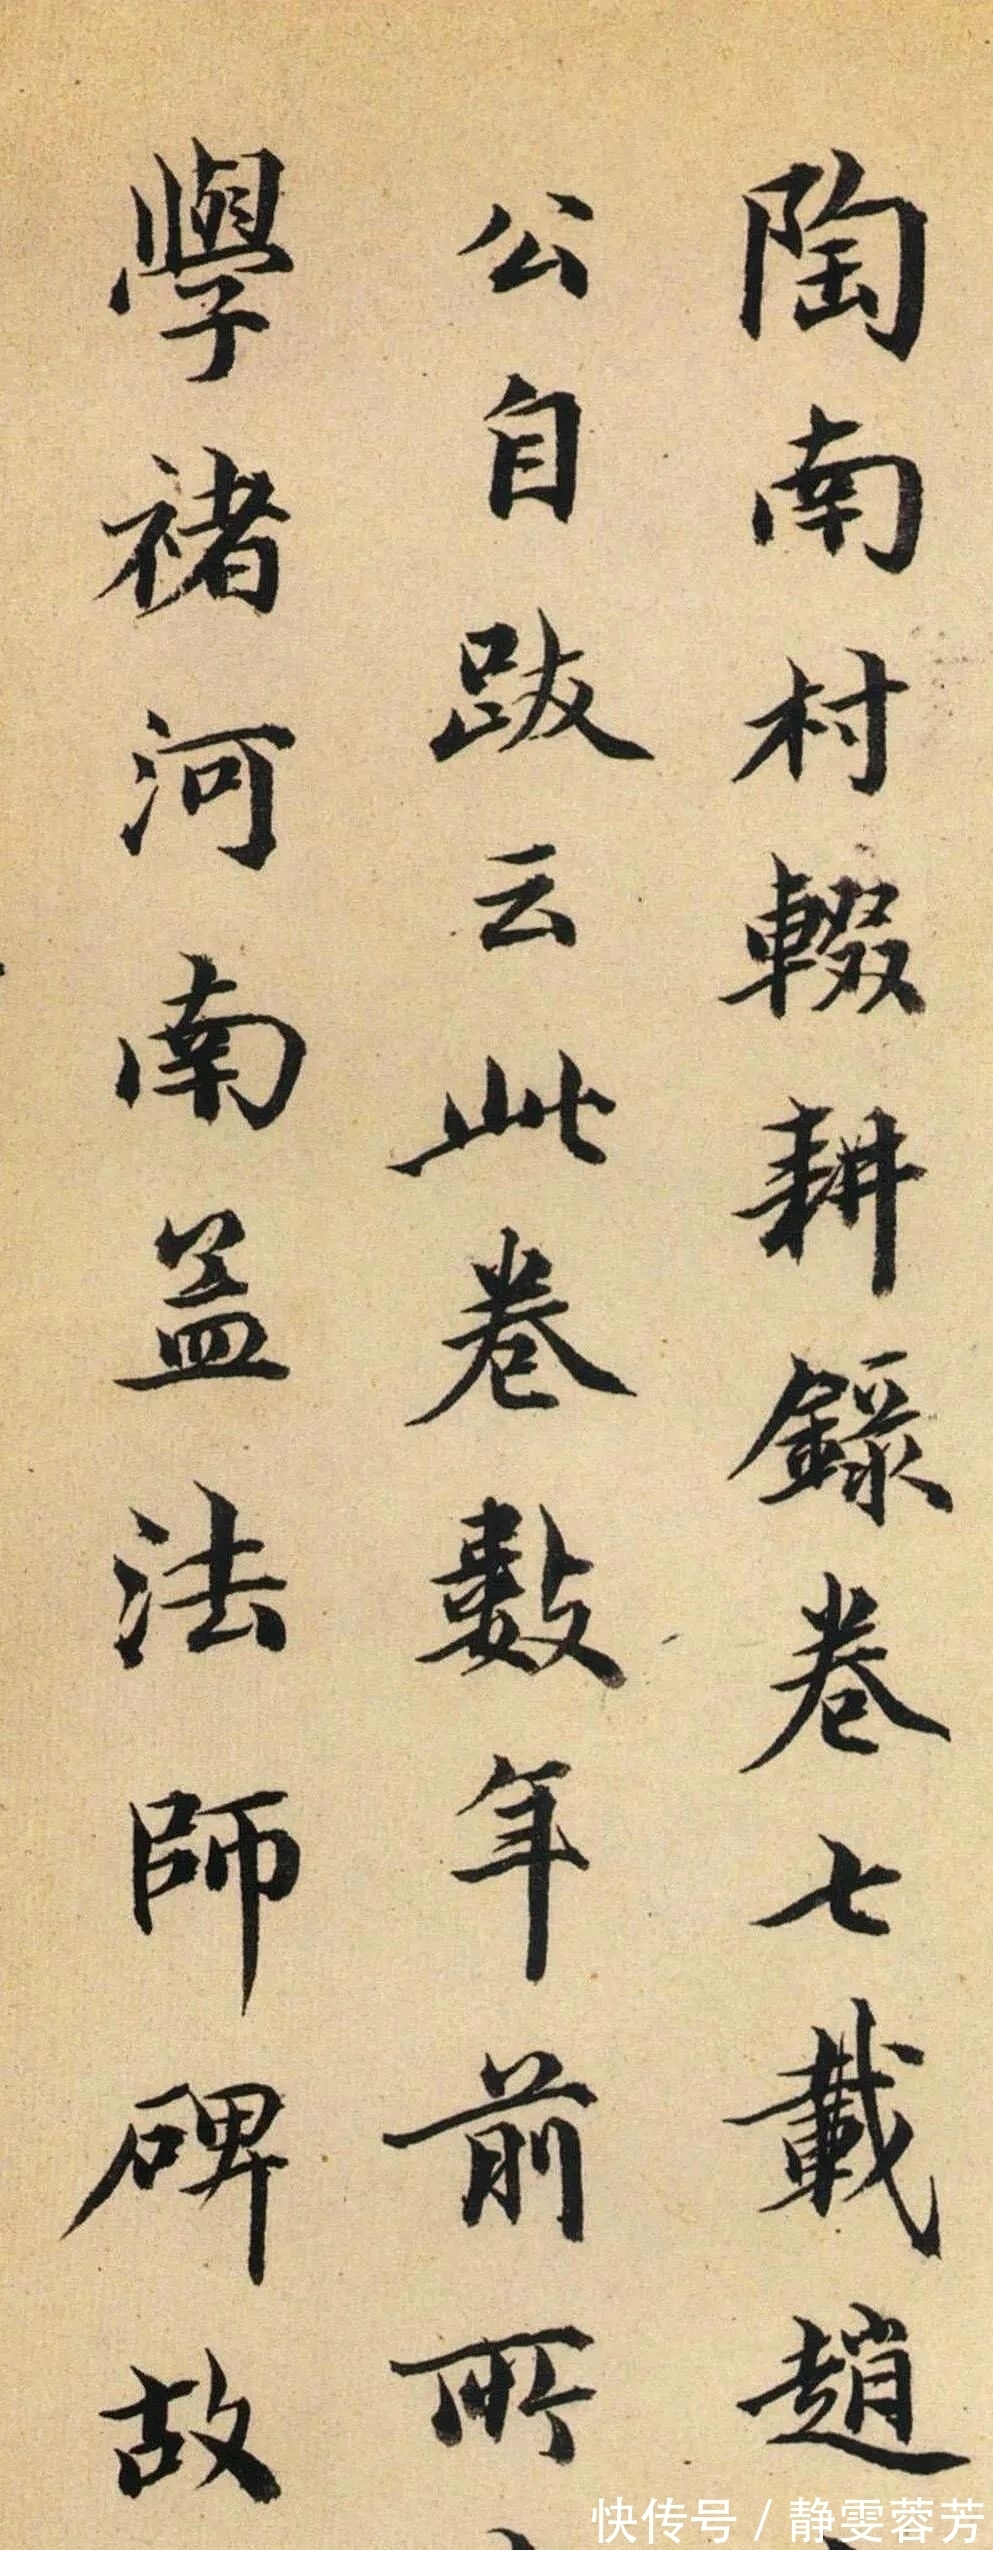 陶南村輟耕錄卷七載趙
公自跋云此卷數年前所
學褚河南孟法師碑故
快传号/静雯蓉芳